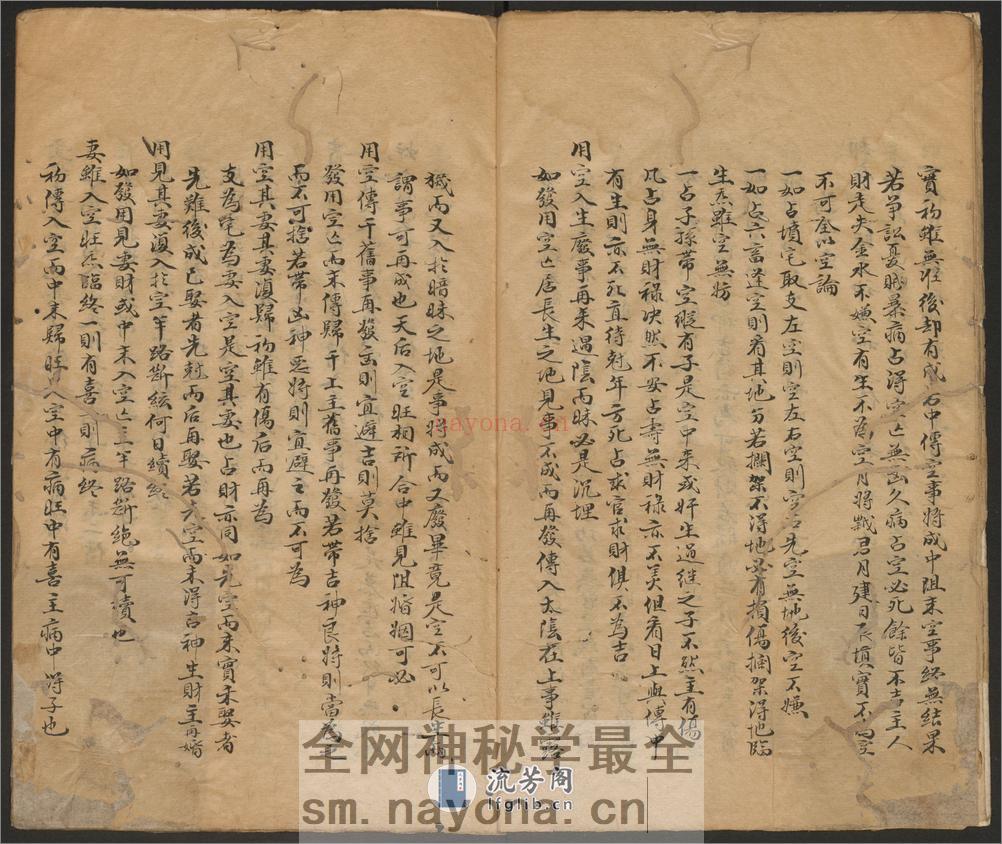 實初雖無壯後却有成若中傳空事將成中阻末空事終無結果
若爭訟憂賊暴病占得空亡無凶久病占空必死餘皆不吉主人
財走失金水不嫌空有生不為空月將戰君月建日辰填實不為空
不可全以空論
一如占墳宅取支左空則空左右空則空右先空無地後空不嫌
一如占六畜逢空則看其地勿若摑架不得地必有損傷摑架得地臨
生炁雖空無妨
一占子孫帶空縱有子是空中來或奸生過継之子不然主有傷
凡占身無財祿决然不安占壽無財祿亦不美但看日上與傳中
有生則亦不死直待尅年方死占求官求財俱不為吉
用空入生廢事再來遇陰而昧必是沉埋
如發用空亡居長生之地見事不成而再發傳入太陰在上事雖
機而又入於暗昧之地是事將成而又廢畢竟是空不可以長生
謂事可再成也天后入空旺相所合中雖見阻婚姻可必
用空傳干舊事再發凶則宜避吉則莫捨
發用空亡而末傳歸干上主舊事再發若帶吉神良將則當為之
而不可捨若帶凶神惡將則宜避之而不可為
用空其妻其妻復歸初雖有傷后而再為
支為宅為妻入空是空其妻也占財亦同如先空而末實未娶者
先難後成已娶者先尅而后再娶若六空而末得吉神生財主再婚
用見其妻復入於空半路斷絃何日續終
如發用見妻財或中末入空亡主半路斷絕無可續也
妻雖入空旺炁臨終一則有喜一則病終
初傳入空而中末歸旺入空中有病旺中有喜主病中得子也
nayona.cn
全网神秘学最全
流芳阁
lfglib.cn
sm.nayona.cn